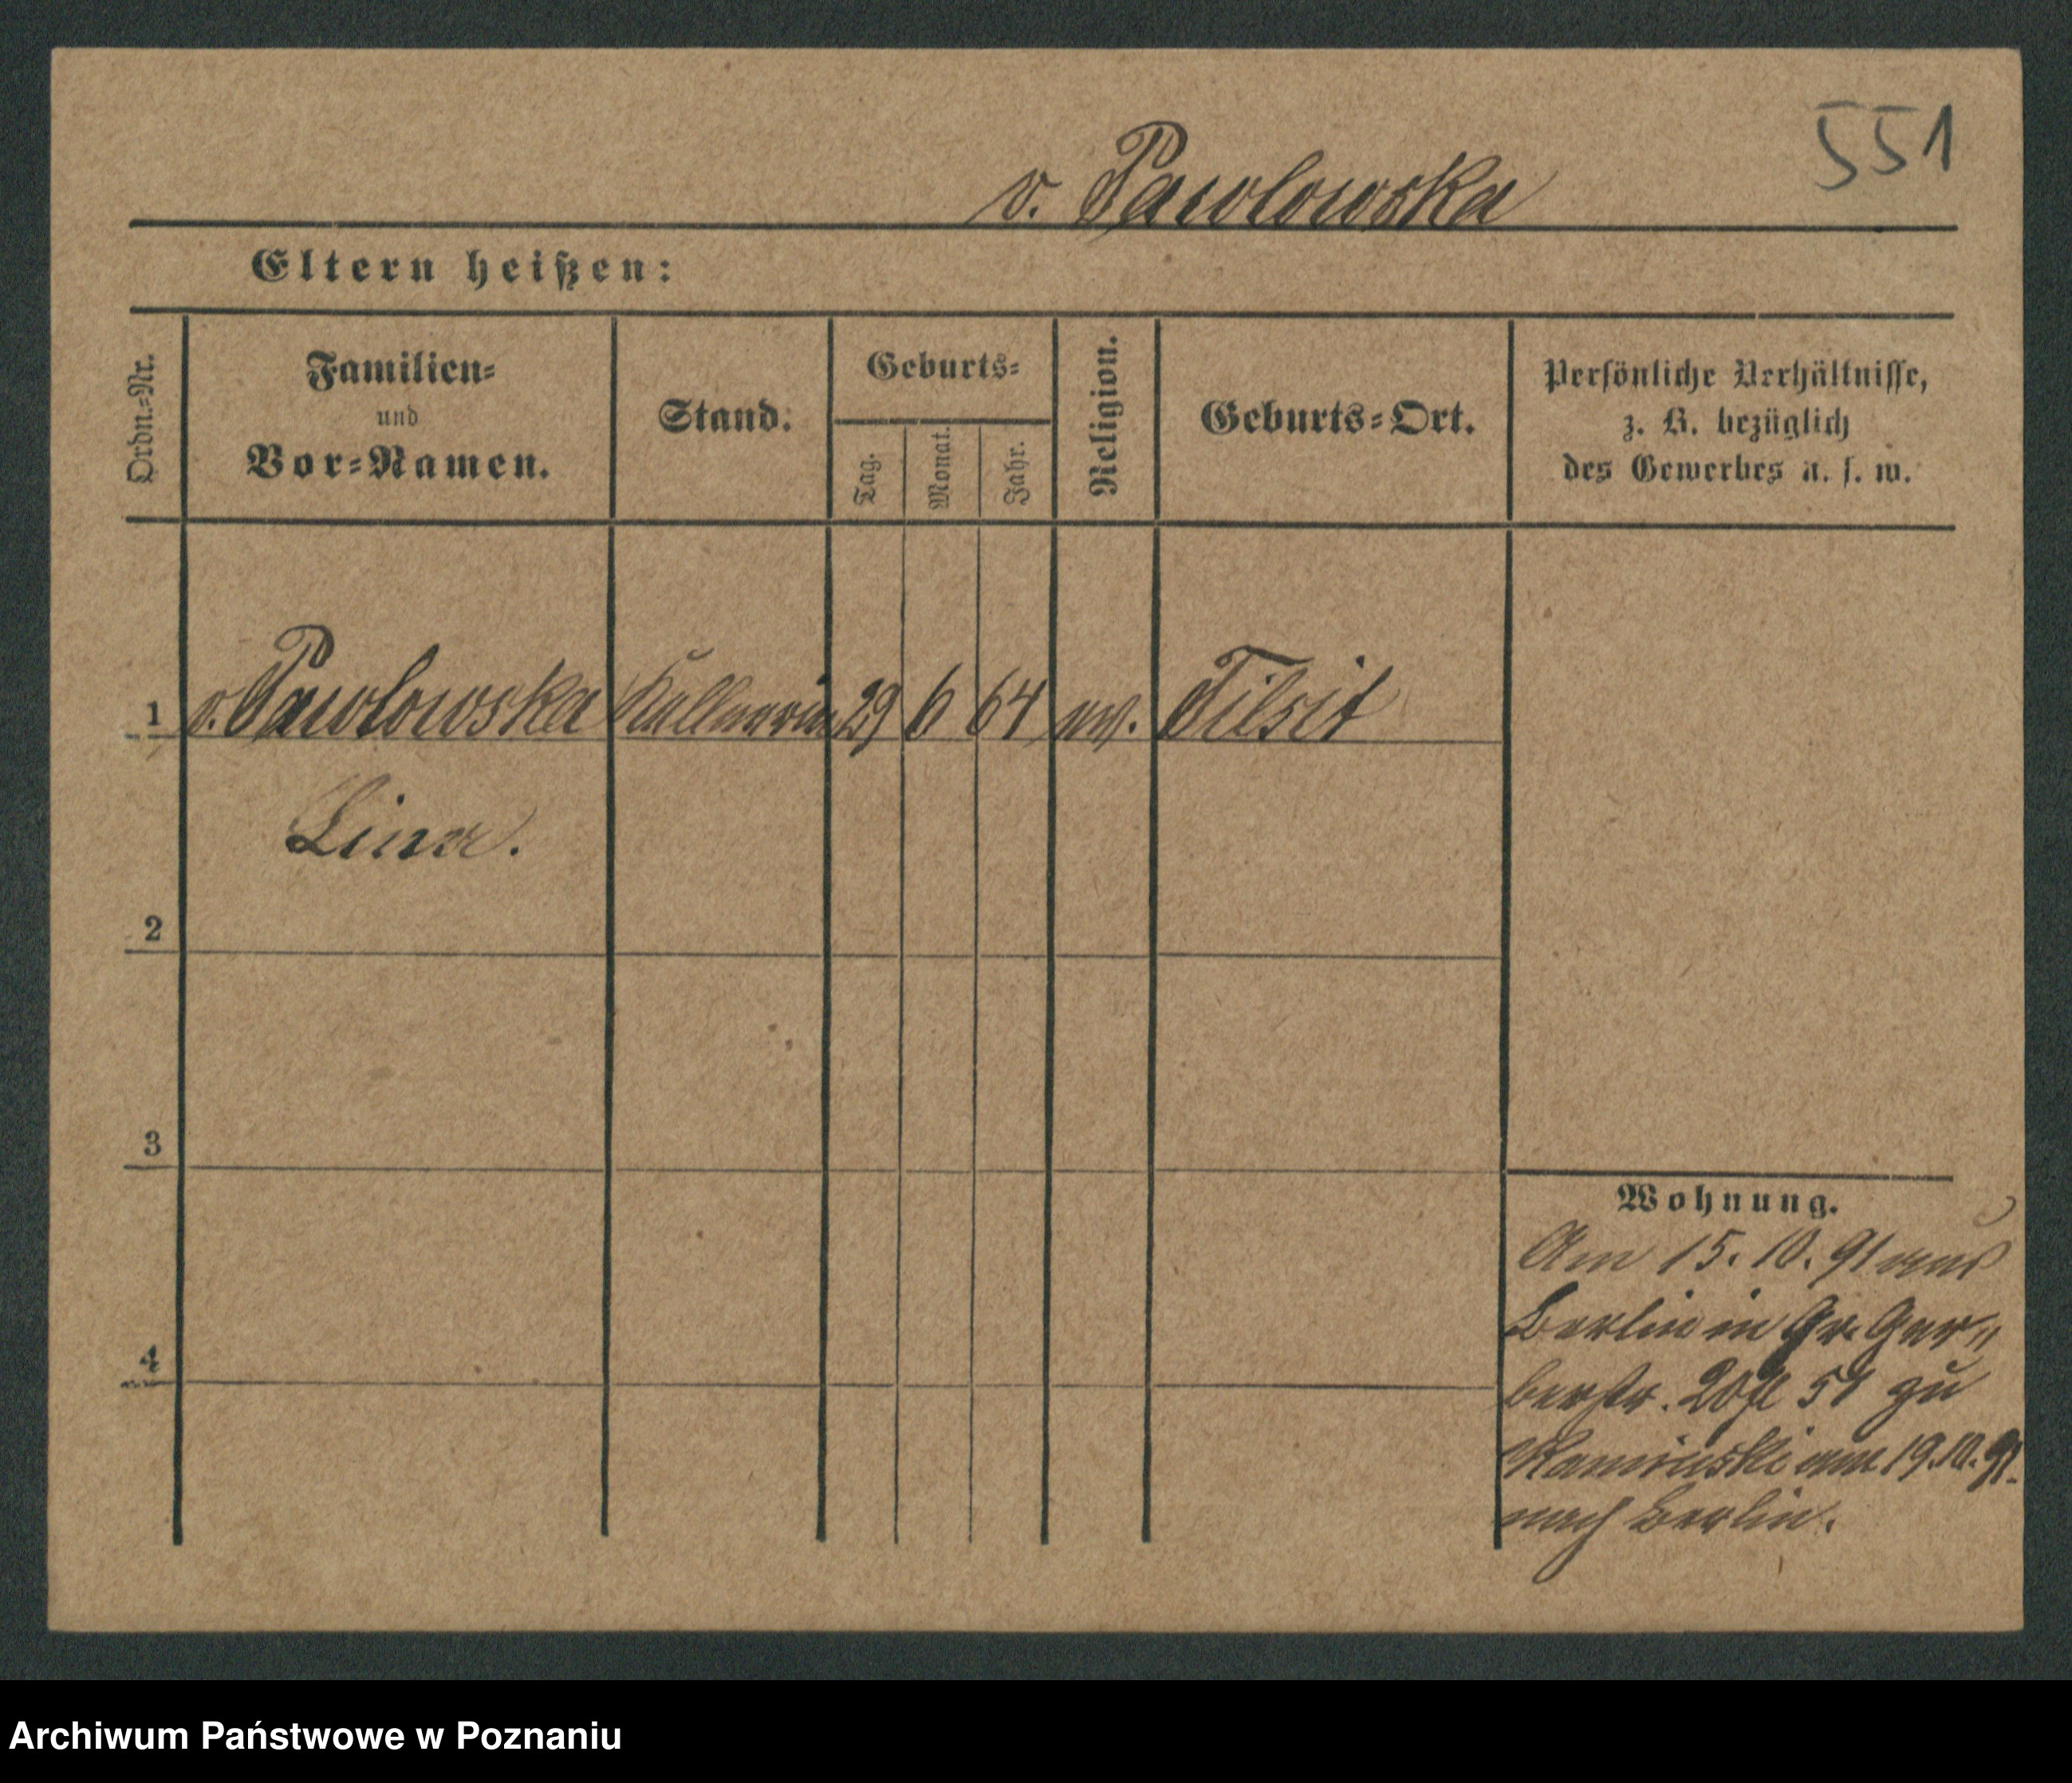 551
v. Pawlowska
Eltern heißen:
Ordn.-Nr.
Familien-
und
Vor-Namen.
Stand.
Geburts-
Tag.
Monat.
Jahr.
Religion.
Geburts-Ort.
Persönliche Verhältnisse,
z. B. bezüglich
des Gewerbes u. s. w.
1 v. Pawlowska Kellnerin 29 6 64 ev. Tilsit
Lina.
2
3
4
Wohnung.
Am 15. 10. 91 aus
Berlin in Gr. Ger-
berstr. 51 zu
Kaminski am 19.10.91.
nach Berlin.
Archiwum Państwowe w Poznaniu